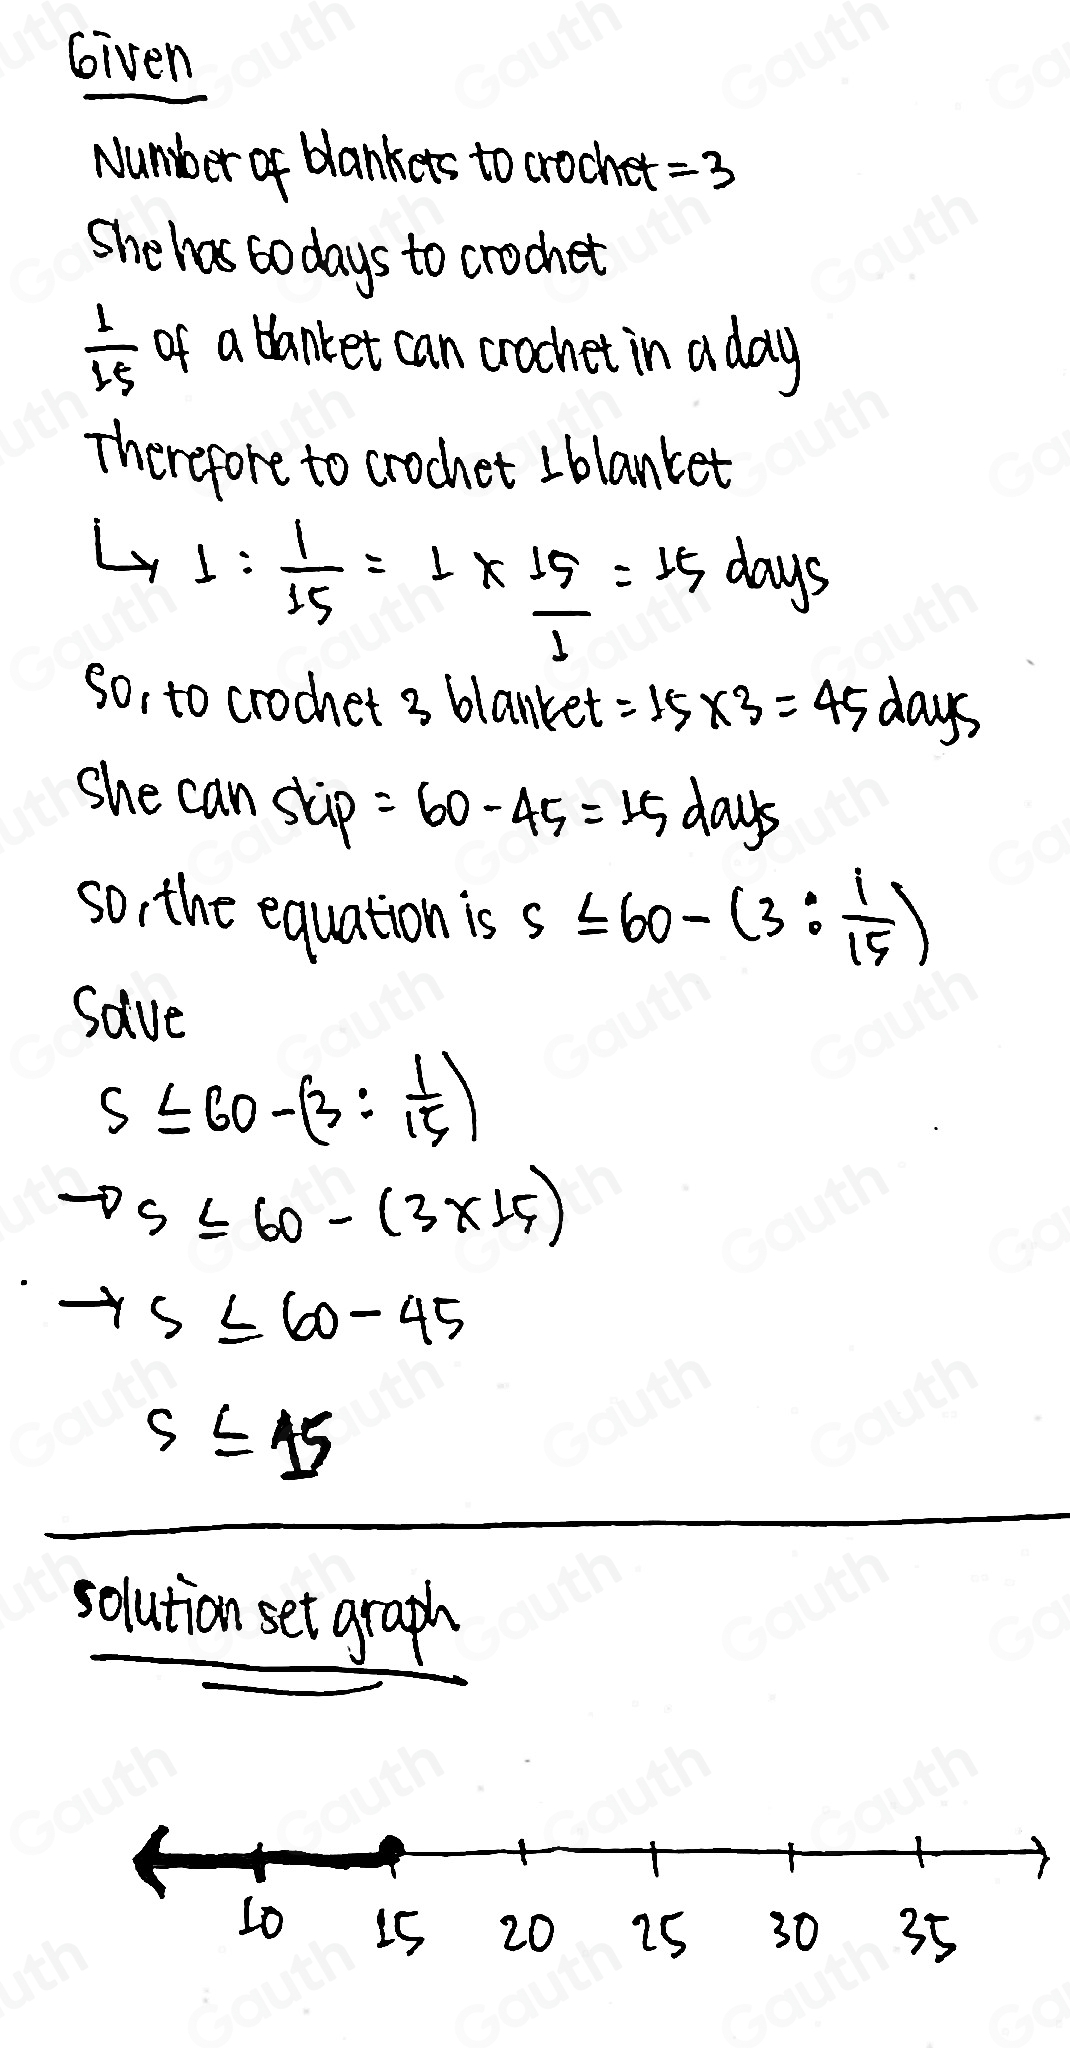 Given
Number of blankets to crochet = 3
She has 60 days to crochet
1/15 of a blanket can crochet in a day
Therefore to crochet 1 blanket
↳ 1 : 1/15 = 1 × 15/1 = 15 days
So, to crochet 3 blanket = 15 × 3 = 45 days
She can skip = 60 - 45 = 15 days
So, the equation is s ≤ 60 - (3 ÷ 1/15)
Solve
s ≤ 60 - (3 : 1/15)
→ s ≤ 60 - (3 × 15)
→ s ≤ 60 - 45
s ≤ 15
Solution set graph
10 15 20 25 30 35